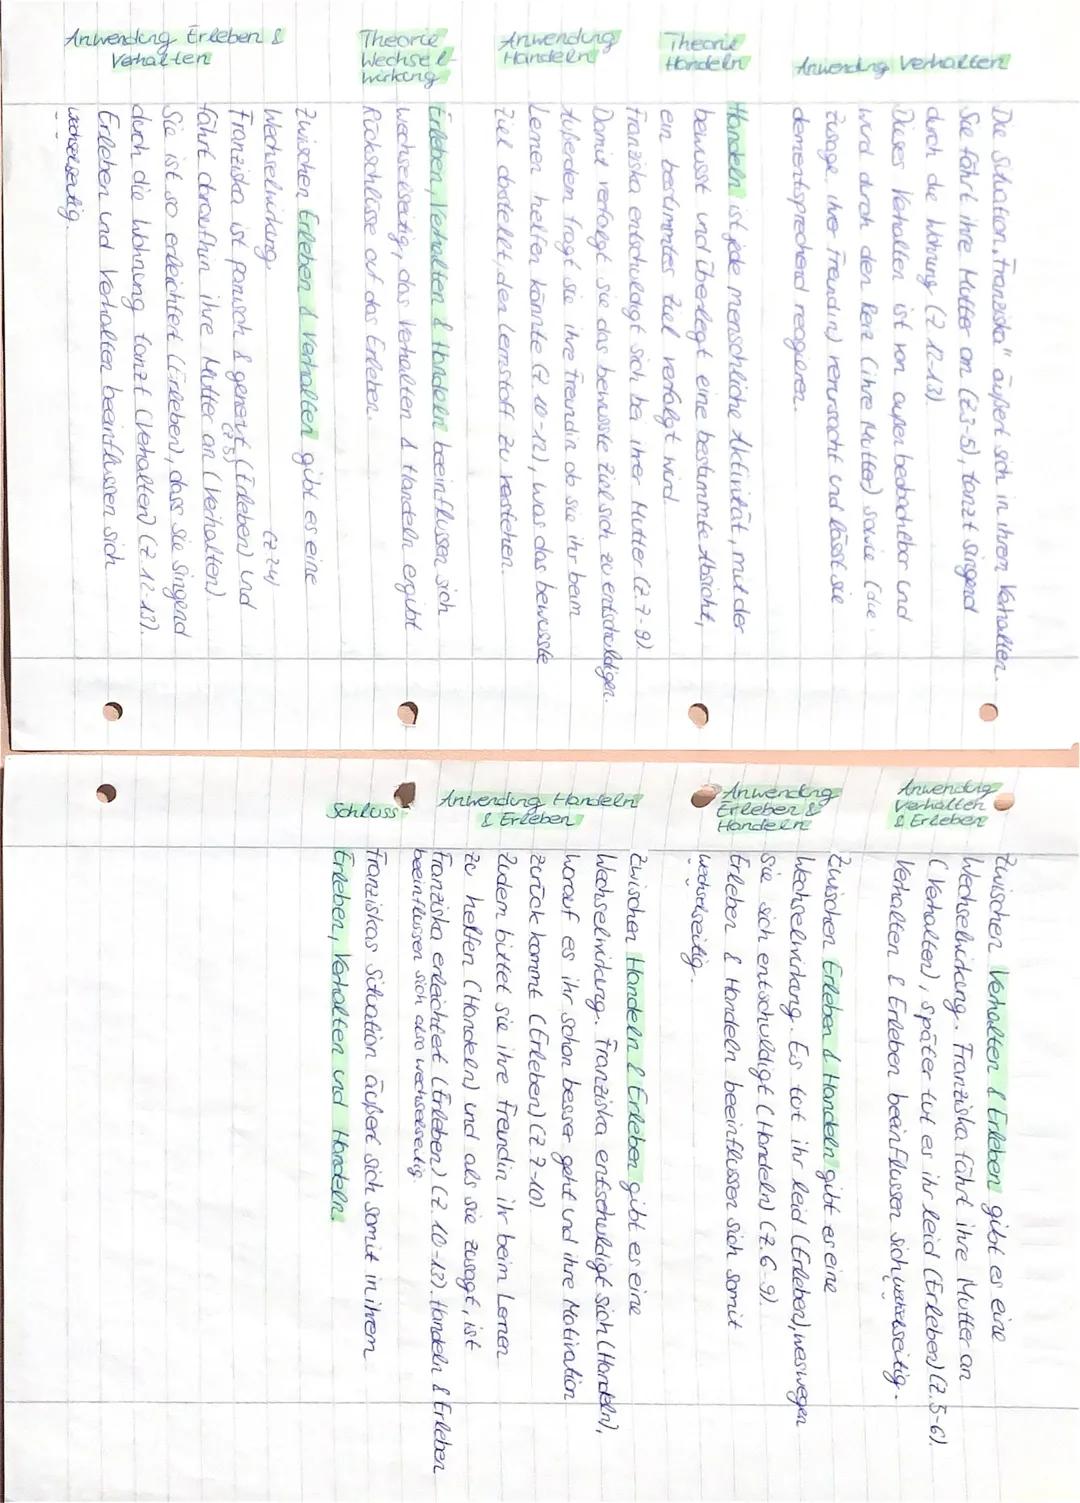 Anwendung Verhalten
Die Situation „Franziska" äußert sich in ihrem Verhalten.
Sie fährt ihre Mutter an (Z.3-5), tanzt singend
durch die Wohnung (Z. 12-13).
Dieses Verhalten ist von außen beobachtbar und
wird durch den Reiz (ihre Mutter) sowie (die
Zusage ihrer Freundin) verursacht und lässt sie
dementsprechend reagieren.
Theorie
Handeln
Handeln ist jede menschliche Aktivität, mit der
bewusst und überlegt eine bestimmte Absicht,
ein bestimmtes Ziel verfolgt wird.
Anwendung
Handeln
Franziska entschuldigt sich bei ihrer Mutter (Z. 7-9).
Damit verfolgt sie das bewusste Ziel sich zu entschuldigen.
Außerdem fragt sie ihre Freundin ob sie ihr beim
Lernen helfen könnte (Z. 10-12), was das bewusste
Ziel darstellt, den Lernstoff zu verstehen.
Theorie
Wechsel-
wirkung
Erleben, Verhalten & Handeln beeinflussen sich
wechselseitig, das Verhalten & Handeln ergibt
Rückschlüsse auf das Erleben.
Anwendung Erleben &
Verhalten
Zwischen Erleben & Verhalten gibt es eine
Wechselwirkung.
Franziska ist panisch & genervt (Erleben) und
fährt daraufhin ihre Mutter an (Verhalten).
Sie ist so erleichtert (Erleben), dass sie singend
durch die Wohnung tanzt (Verhalten) (Z. 12-13).
Erleben und Verhalten beeinflussen sich
wechselseitig.
Anwendung
Verhalten
& Erleben
Zwischen Verhalten & Erleben gibt es eine
Wechselwirkung. Franziska fährt ihre Mutter an
(Verhalten), später tut es ihr leid (Erleben) (Z.5-6).
Verhalten & Erleben beeinflussen sich wechselseitig.
Anwendung
Erleben &
Handeln
Zwischen Erleben & Handeln gibt es eine
Wechselwirkung. Es tut ihr leid (Erleben), weswegen
sie sich entschuldigt (Handeln) (Z. 6-9).
Erleben & Handeln beeinflussen sich somit
wechselseitig.
Anwendung Handeln
& Erleben
Zwischen Handeln & Erleben gibt es eine
Wechselwirkung. Franziska entschuldigt sich (Handeln),
worauf es ihr schon besser geht und ihre Motivation
zurück kommt (Erleben) (Z. 7-10)
Zudem bittet sie ihre Freundin ihr beim Lernen
zu helfen (Handeln) und als sie zusagt, ist
Franziska erleichtert (Erleben) (Z. 10-13). Handeln & Erleben
beeinflussen sich also wechselseitig.
Schluss
Franziskas Situation äußert sich somit in ihrem
Erleben, Verhalten und Handeln.